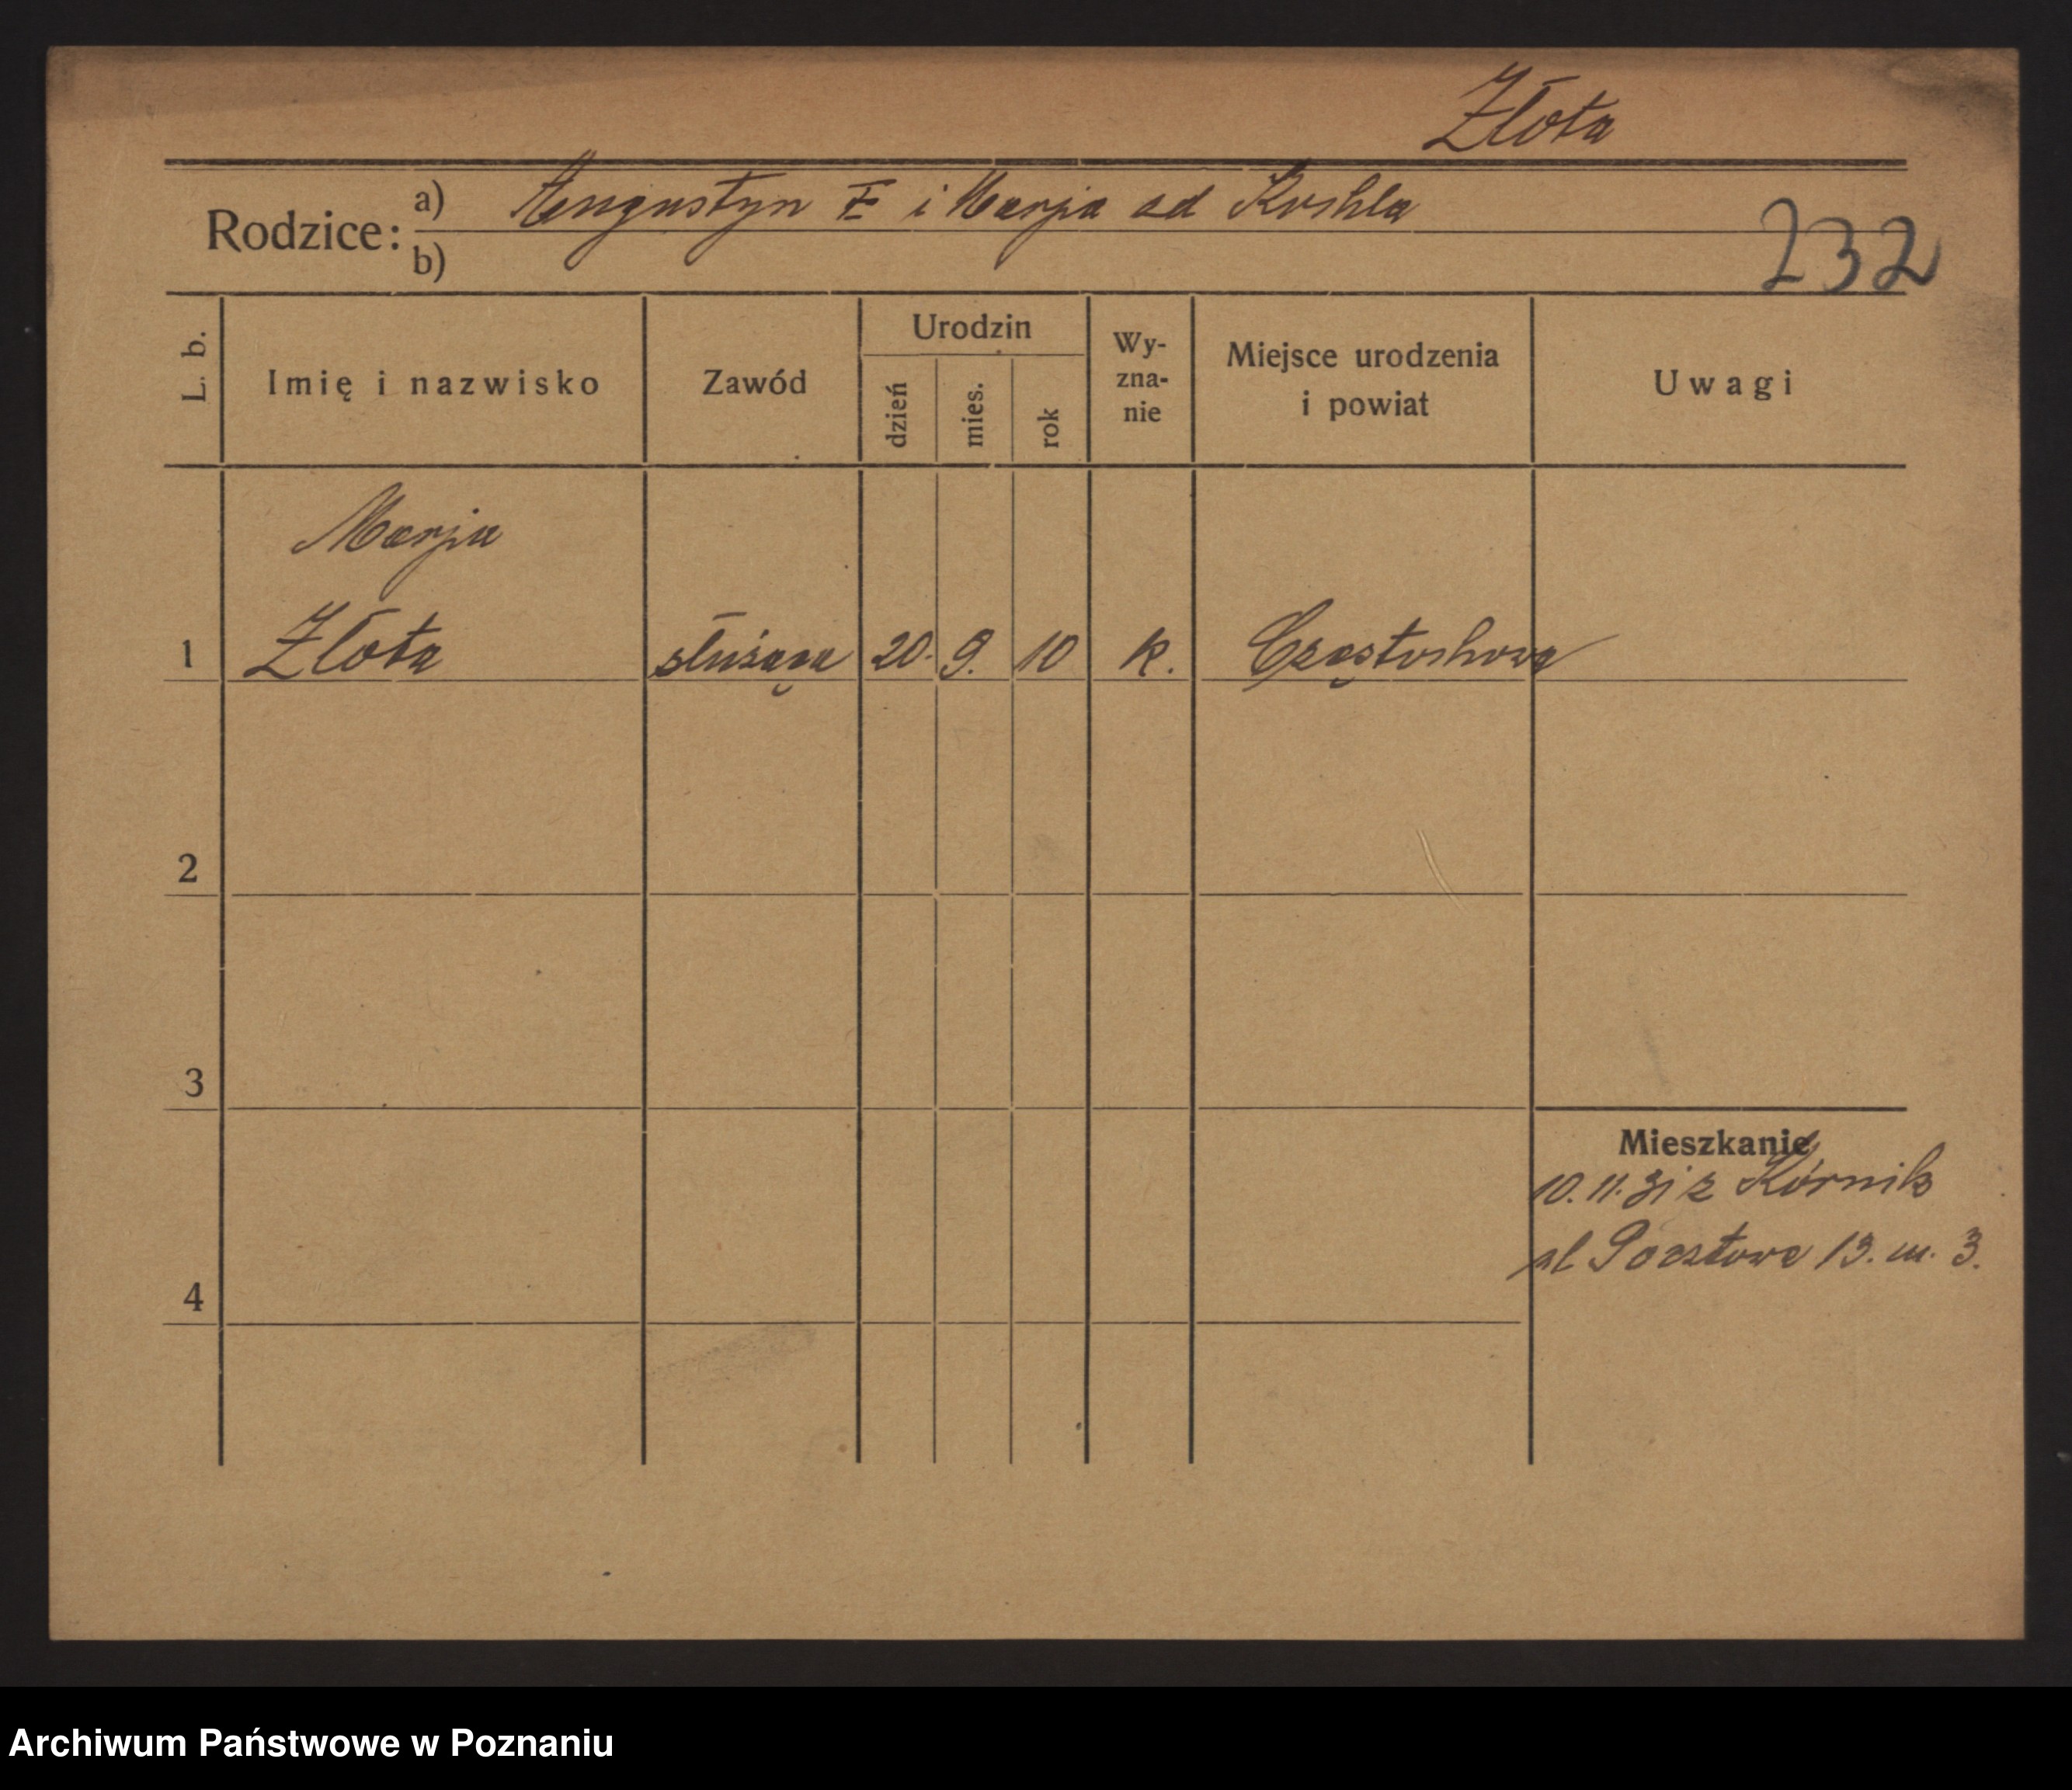 Złota
Rodzice: a) Augustyn i Marja od
b)
232
L. b. Imię i nazwisko Zawód Urodzin dzień mies. rok Wy-zna-nie Miejsce urodzenia i powiat Uwagi
Marja
1 Złota służąca 20. 9. 10 k. Częstochowa
2
3
Mieszkanie
10.11.31 z Kórnik
pl Pocztowe 13. m. 3.
4
Archiwum Państwowe w Poznaniu